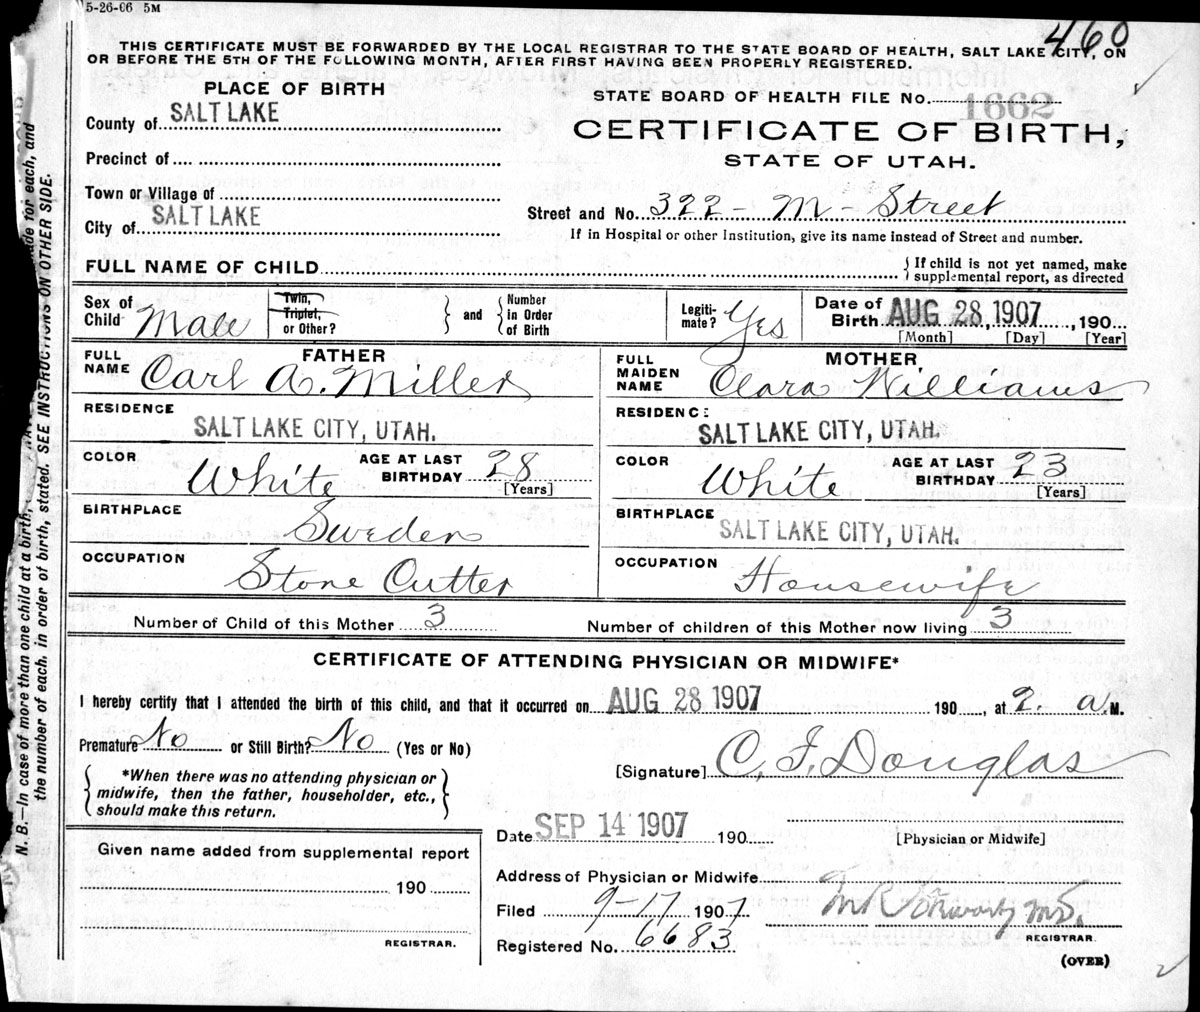 5-26-06 5M
460
THIS CERTIFICATE MUST BE FORWARDED BY THE LOCAL REGISTRAR TO THE STATE BOARD OF HEALTH, SALT LAKE CITY, ON
OR BEFORE THE 5TH OF THE FOLLOWING MONTH, AFTER FIRST HAVING BEEN PROPERLY REGISTERED.
PLACE OF BIRTH
County of SALT LAKE
Precinct of
Town or Village of
City of SALT LAKE
STATE BOARD OF HEALTH FILE No. 1662
CERTIFICATE OF BIRTH,
STATE OF UTAH.
Street and No. 322 - M - Street
If in Hospital or other Institution, give its name instead of Street and number.
FULL NAME OF CHILD
If child is not yet named, make
supplemental report, as directed
Sex of Child Male
Twin,
Triplet,
or Other?
and
Number
in Order
of Birth
Legiti-
mate? Yes
Date of
Birth AUG 28, 1907, 190
[Month] [Day] [Year]
FATHER
FULL NAME Carl A. Miller
RESIDENCE
SALT LAKE CITY, UTAH.
COLOR White AGE AT LAST BIRTHDAY 28
[Years]
BIRTHPLACE
Sweden
OCCUPATION
Stone Cutter
MOTHER
FULL MAIDEN NAME Clara Williams
RESIDENCE
SALT LAKE CITY, UTAH.
COLOR White AGE AT LAST BIRTHDAY 23
[Years]
BIRTHPLACE
SALT LAKE CITY, UTAH.
OCCUPATION
Housewife
Number of Child of this Mother 3
Number of children of this Mother now living 3
CERTIFICATE OF ATTENDING PHYSICIAN OR MIDWIFE*
I hereby certify that I attended the birth of this child, and that it occurred on AUG 28 1907 190, at 2. a.M.
Premature No or Still Birth? No (Yes or No)
*When there was no attending physician or
midwife, then the father, householder, etc.,
should make this return.
[Signature] C. F. Douglas
Date SEP 14 1907 190
[Physician or Midwife]
Given name added from supplemental report
190
REGISTRAR.
Address of Physician or Midwife
Filed 9-17 1907
Registered No. 6683
M.D.
REGISTRAR.
(OVER)
N. B.—In case of more than one child at a birth, made for each, and
the number of each, in order of birth, stated. SEE INSTRUCTIONS ON OTHER SIDE.